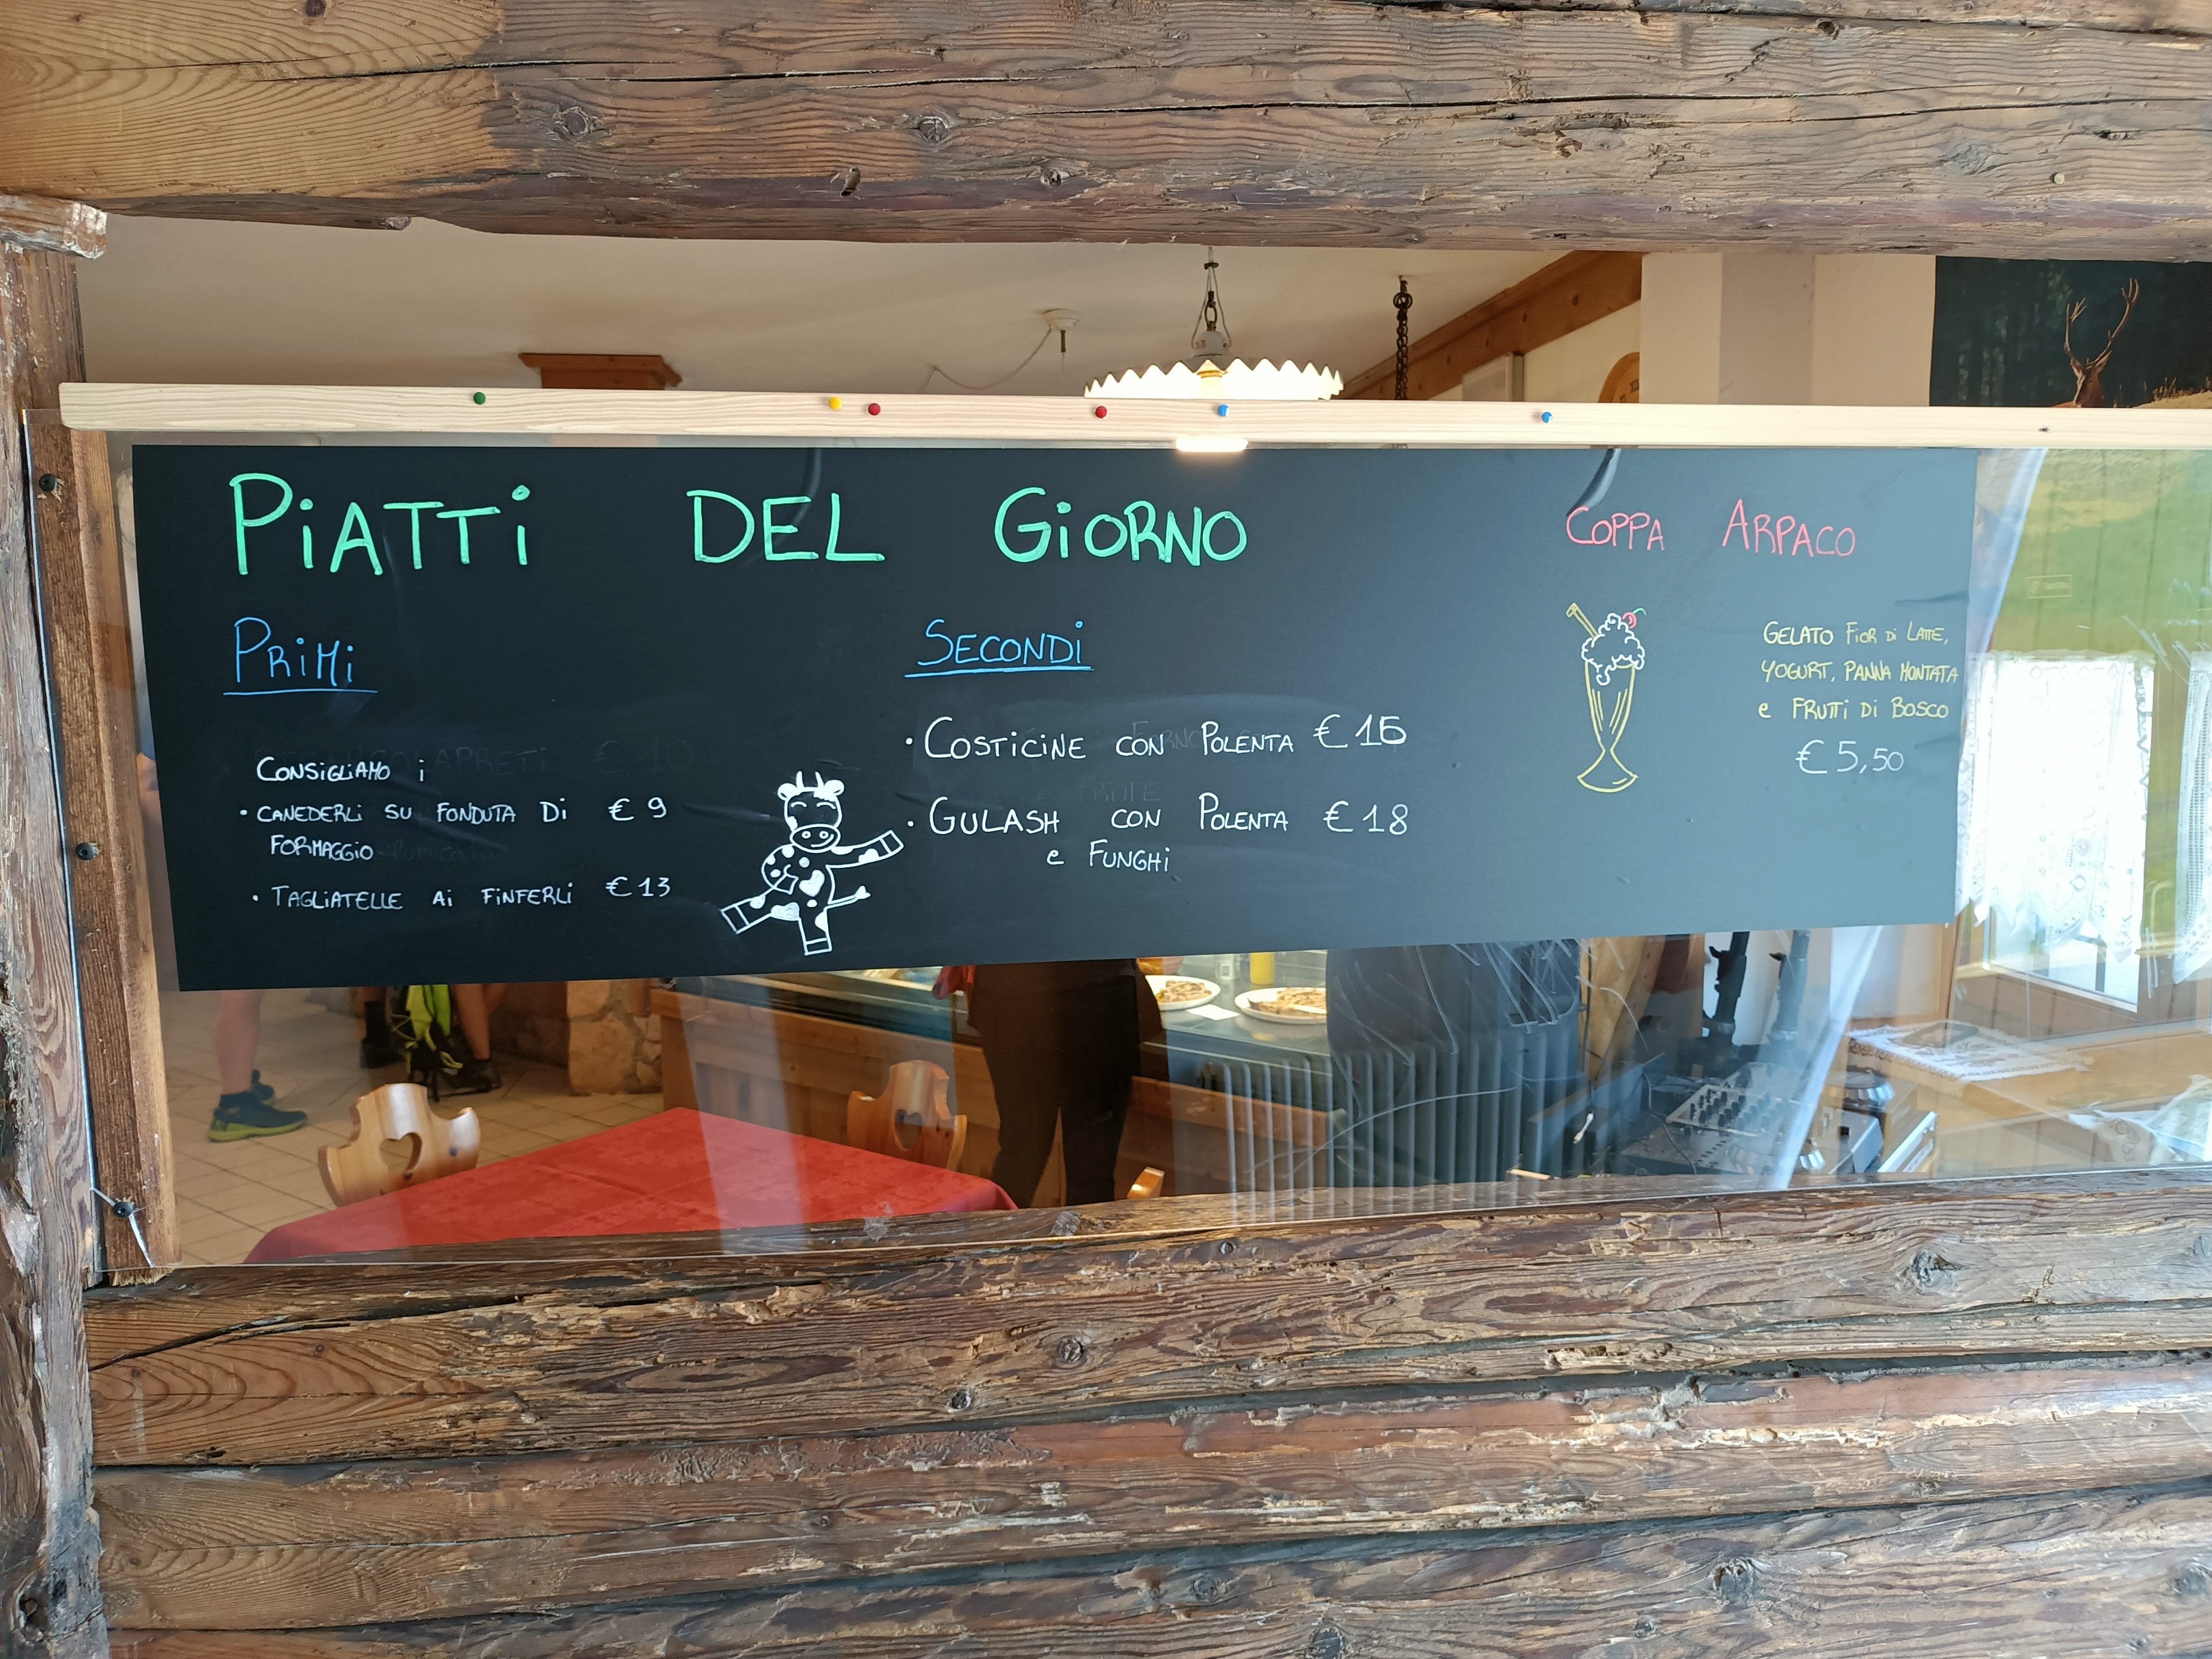 PiATTi DEL GiORNO
PRiMi
CONSiGLiAMO i
• CANEDERLi SU FONDUTA Di € 9
FORMAGGiO
• TAGLiATELLE Ai FiNFERLi € 13
SECONDi
• COSTiCiNE CON POLENTA
• GULASH CON POLENTA € 18
e FUNGHi
COPPA ARPACO
GELATO FiOR Di LATTE,
YOGURT, PANNA MONTATA
e FRUTTi Di BOSCO
€ 5,50